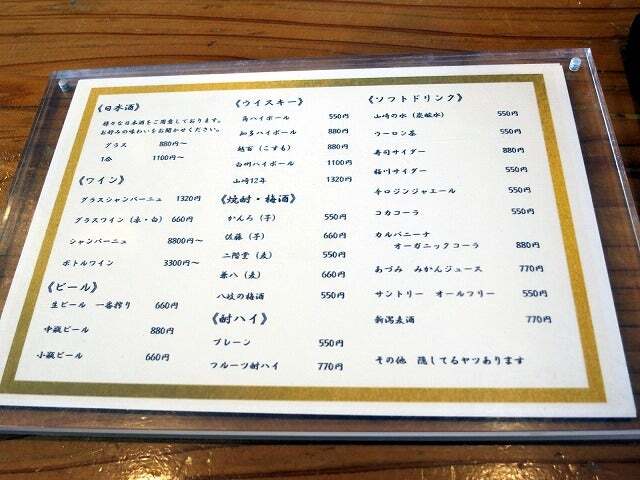 《日本酒》
様々な日本酒をご用意しております。
お好みの味わいをお聞かせください。
グラス 880円～
1合 1100円～
《ワイン》
グラスシャンパーニュ 1320円
グラスワイン（赤・白） 660円
シャンパーニュ 8800円～
ボトルワイン 3300円～
《ビール》
生ビール 一番搾り 660円
中瓶ビール 880円
小瓶ビール 660円
《ウイスキー》
角ハイボール 550円
知多ハイボール 880円
越百（こすも） 880円
白州ハイボール 1100円
山崎12年 1320円
《焼酎・梅酒》
かんろ（芋） 550円
佐藤（芋） 660円
二階堂（麦） 550円
兼八（麦） 660円
八岐の梅酒 550円
《酎ハイ》
プレーン 550円
フルーツ酎ハイ 770円
《ソフトドリンク》
山崎の水（炭酸水） 550円
ウーロン茶 550円
寿司サイダー 880円
桶川サイダー 550円
辛口ジンジャエール 550円
コカコーラ 550円
カルパニーナ
オーガニックコーラ 880円
あづみ みかんジュース 770円
サントリー オールフリー 550円
新潟麦酒 770円
その他 隠してるヤツあります